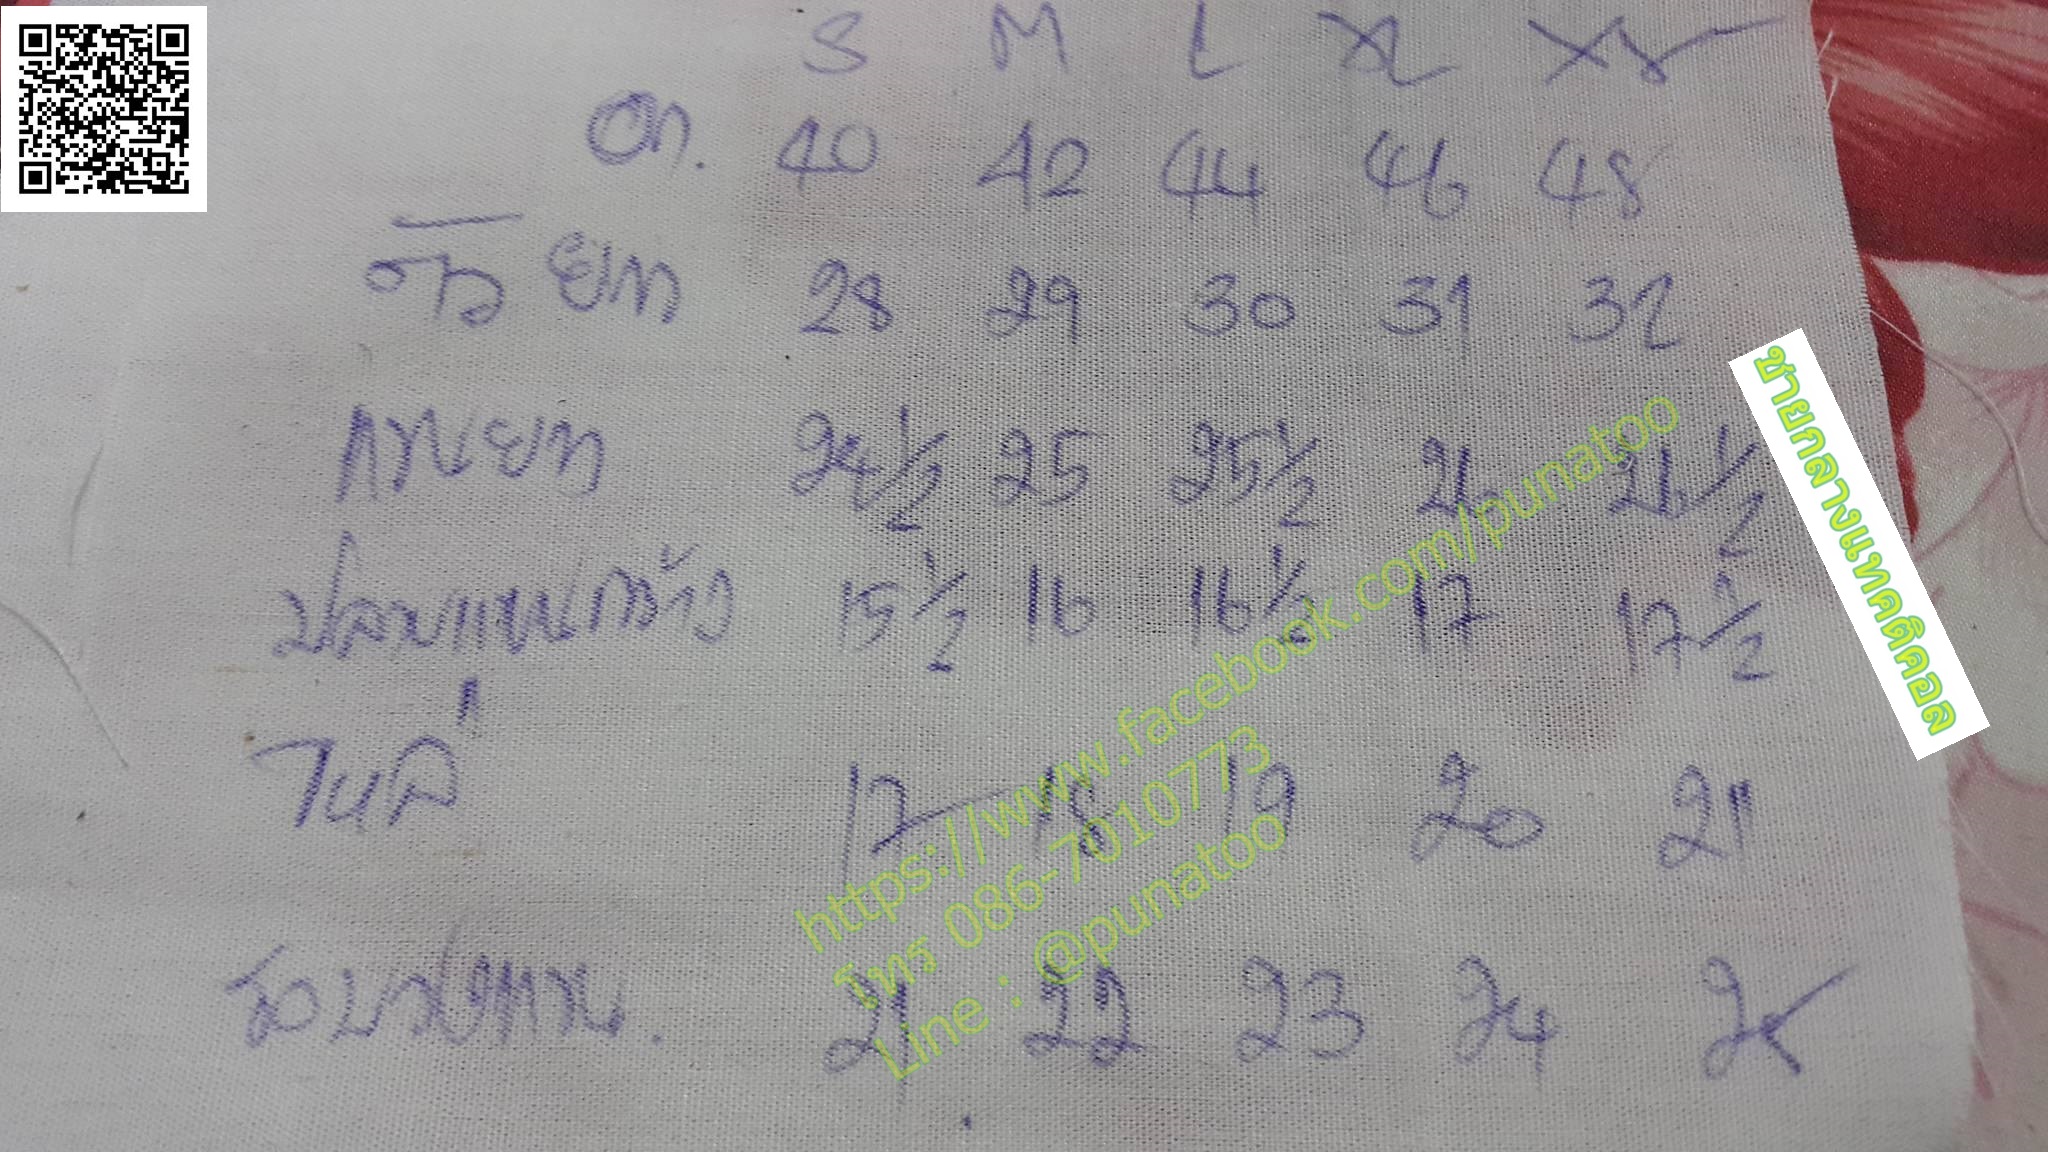 S M L XL XXL
อก. 40 42 44 46 48
ตัวยาว 28 29 30 31 32
แขนยาว 24 1/2 25 25 1/2 26 26 1/2
ปลายแขนกว้าง 15 1/2 16 16 1/2 17 17 1/2
ไหล่ 17 18 19 20 21
รอบวงแขน. 21 22 23 24 25
ชายกลางแทคติคอล
https://www.facebook.com/punatoo
โทร 086-7010773
Line : @punatoo